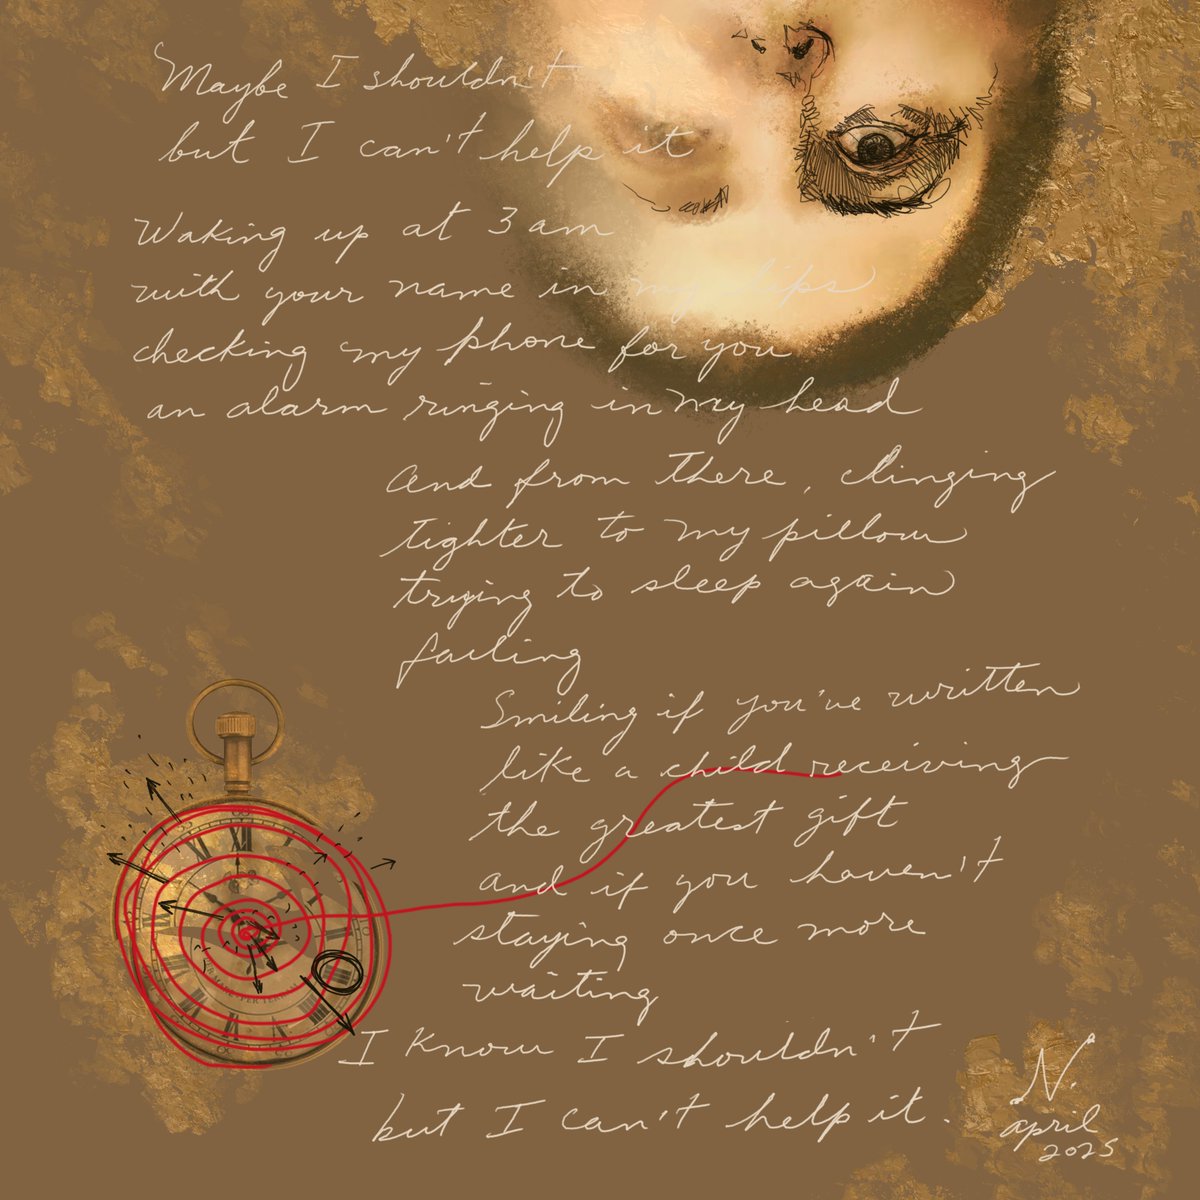 Maybe I shouldn't
but I can't help it
Waking up at 3 am
with your name in my lips
checking my phone for you
an alarm ringing in my head
And from there, clinging
tighter to my pillow
trying to sleep again
failing
Smiling if you've written
like a child receiving
the greatest gift
and if you haven't
staying once more
waiting
I know I shouldn't
but I can't help it.
N.
april
2025
XII